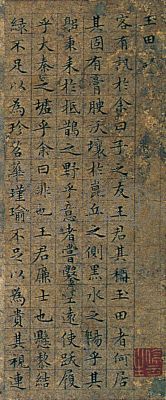 玉田
客有訊於余曰子之友王君其稱玉田者何居
其固有膏腴沃壤於崑丘之側黑水之暘乎其
秉耒於抵鵲之野乎意者嘗鑿空遠使跋履
乎大秦之墟乎余曰非也王君廉士也懸黎結
緑不足以為珍苕華瑾瑜不足以為貴其視連